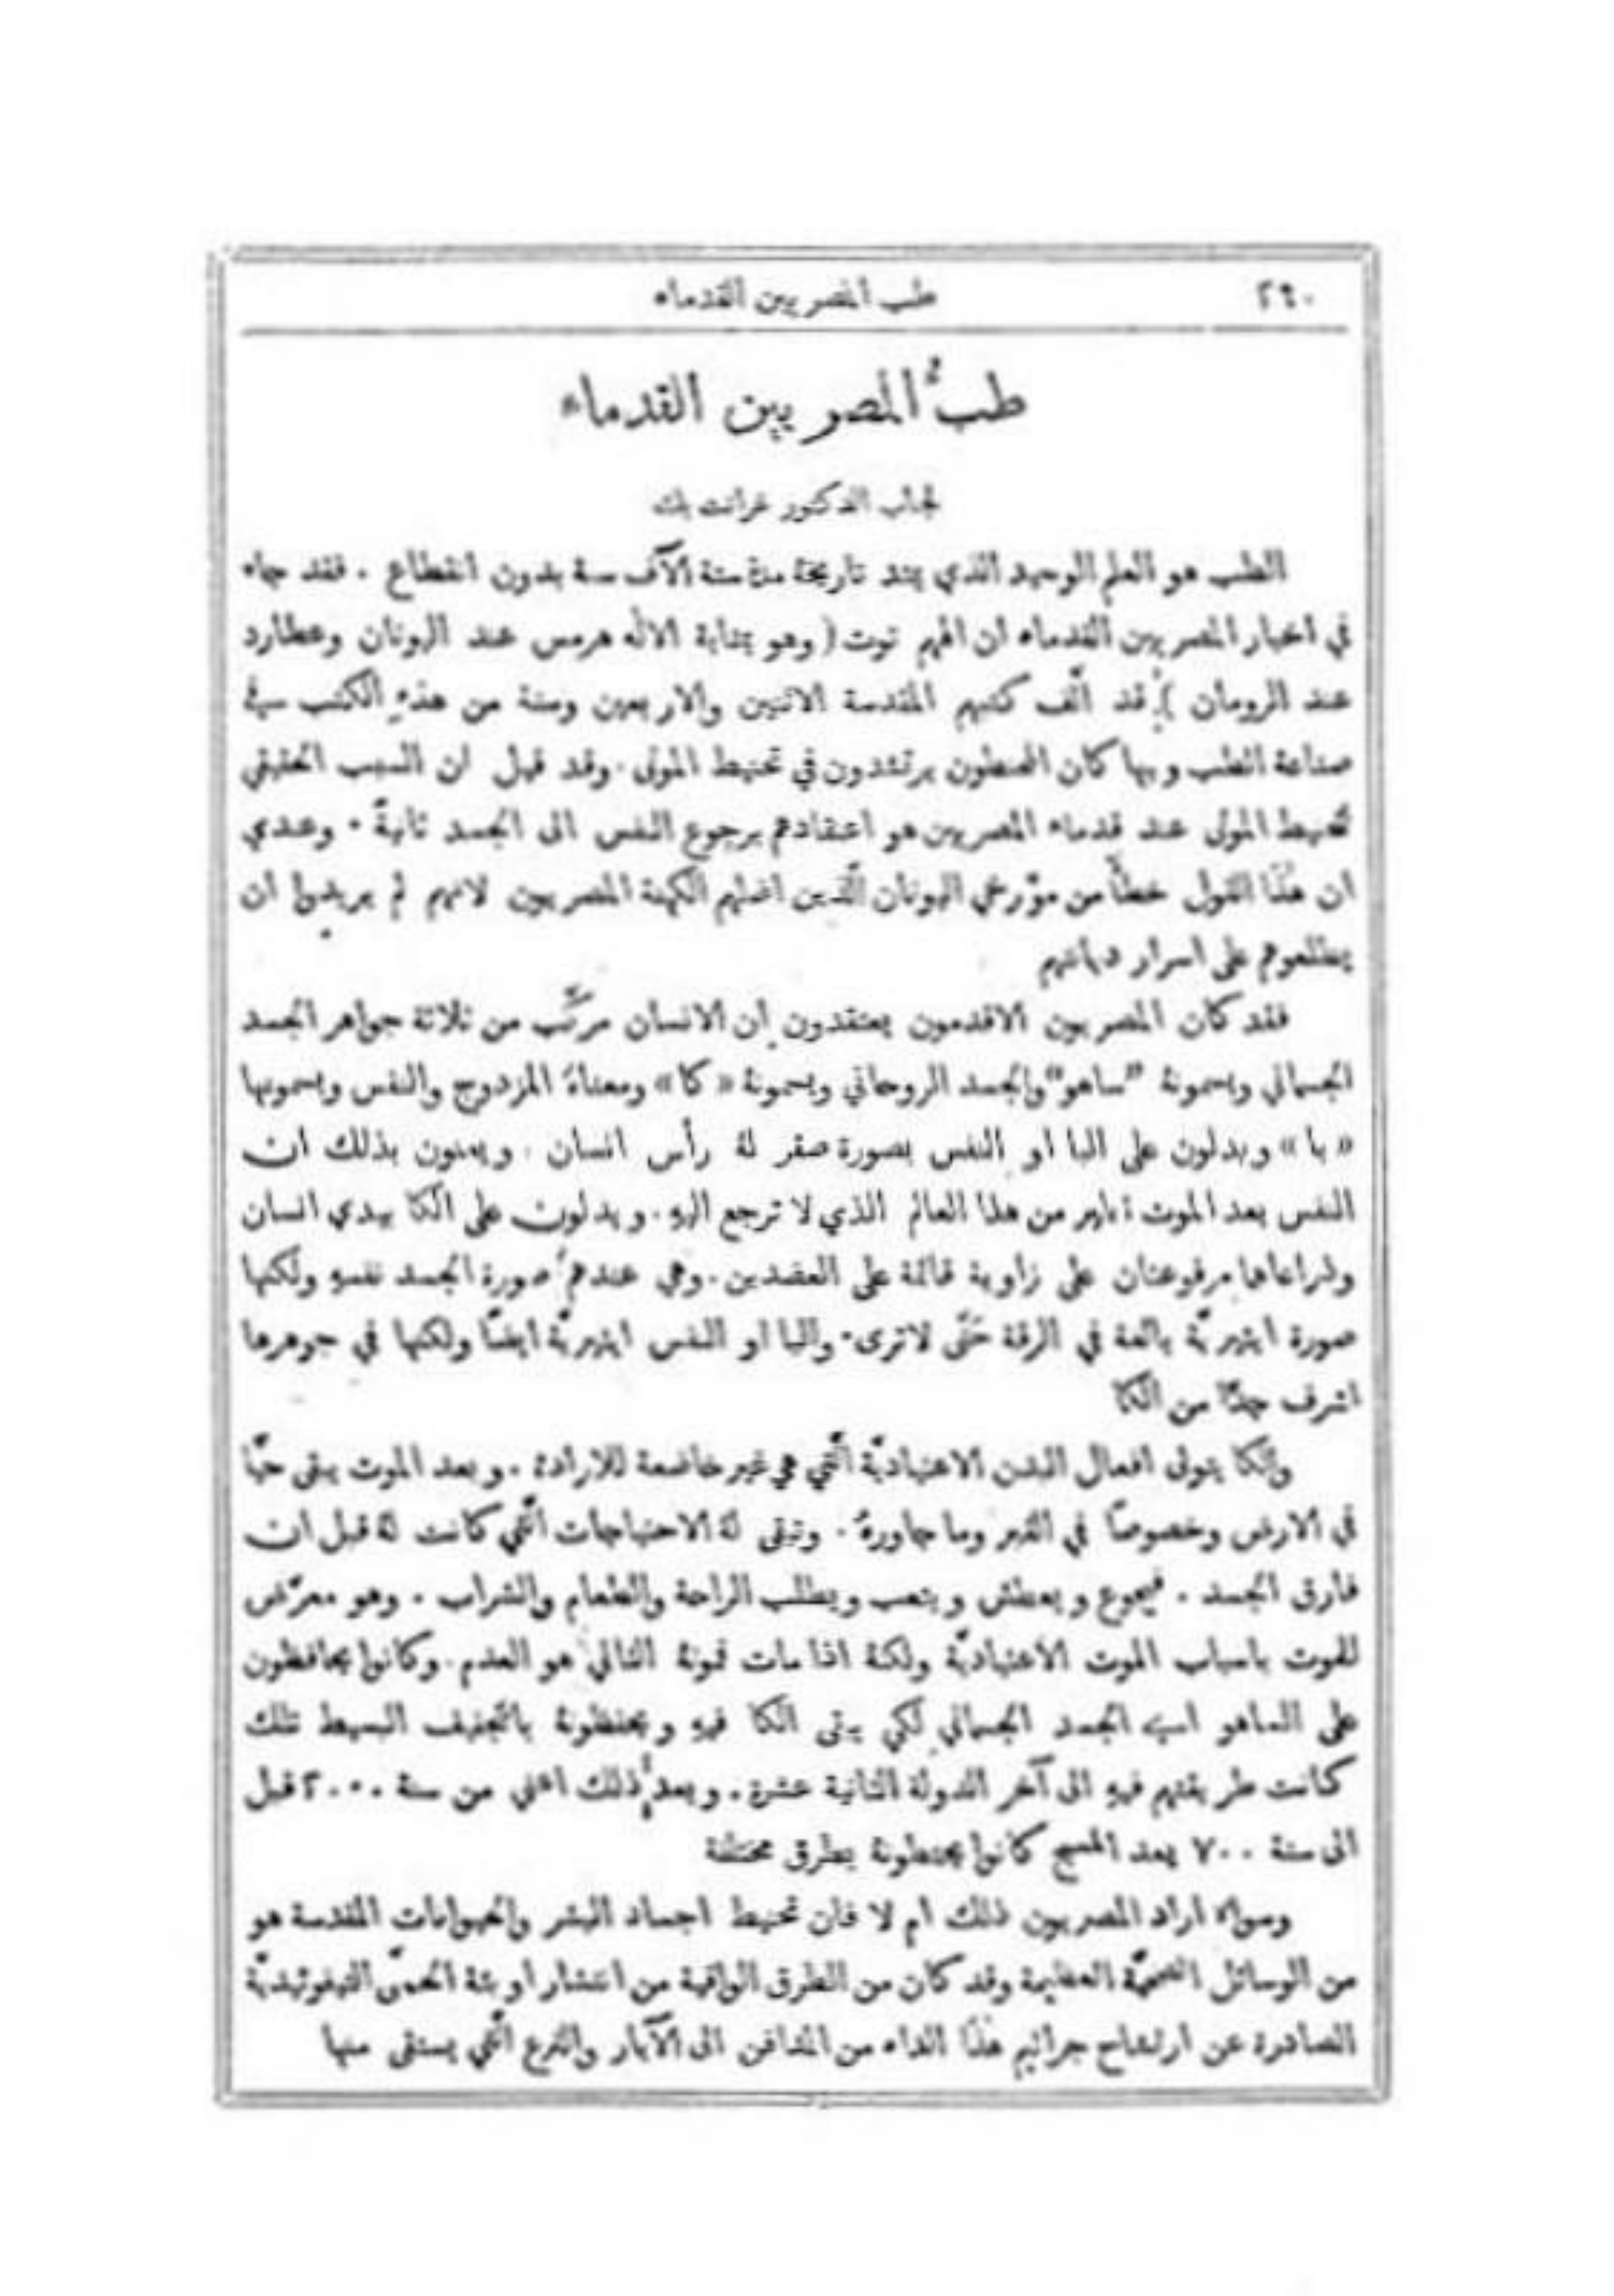 ٢٩٠ طب المصريين القدماء
طبُّ المصريين القدماء
لجناب الدكتور غرانت بك
الطب هو العلم الوحيد الذي يمتد تاريخهُ مدة ستة آلاف سنة بدون انقطاع . فقد جاء
في اخبار المصريين القدماء ان الههم توت ( وهو بمثابة الاله هرمس عند اليونان وعطارد
عند الرومان ) قد الَّف كتبهم المقدسة الاثنين والاربعين وستة من هذهِ الكتب في
صناعة الطب وبها كان المحنطون يرتشدون في تحنيط الموتى . وقد قيل ان السبب الحقيقي
لتحنيط الموتى عند قدماء المصريين هو اعتقادهم برجوع النفس الى الجسد ثانيةً . وعندي
ان هٰذا القول خطأٌ من مؤرخي اليونان الَّذين اضلهم الكهنة المصريون لانهم لم يريدوا ان
يطلعوهم على اسرار ديانتهم
فقد كان المصريون الاقدمون يعتقدون ان الانسان مركَّب من ثلاثة جواهر الجسد
الجسماني ويسمونهُ "ساهو" والجسد الروحاني ويسمونهُ « كا » ومعناهُ المزدوج والنفس ويسمونها
« با » ويدلون على البا او النفس بصورة صقر لهُ رأس انسان . ويعنون بذلك ان
النفس بعد الموت تطير من هذا العالم الذي لا ترجع اليهِ . ويدلون على الكا بيدي انسان
وذراعاها مرفوعتان على زاوية قائمة على العضدين . وهي عندهم صورة الجسد نفسهِ ولكنها
صورة ايثيريَّة بالغة في الرقة حَتَّى لا ترى . والبا او النفس ايثيريَّة ايضًا ولكنها في جوهرها
اشرف جدًّا من الكا
والكا يتولى افعال البدن الاعتياديَّة الَّتي هي غير خاضعة للارادة . وبعد الموت يبقى حيًّا
في الارض وخصوصًا في القبر وما جاورهُ . وتبقى لهُ الاحتياجات الَّتي كانت لهُ قبل ان
فارق الجسد . فيجوع ويعطش ويتعب ويطلب الراحة والطعام والشراب . وهو معرَّض
للموت باسباب الموت الاعتياديَّة ولكنهُ اذا مات فموتهُ الثاني هو العدم . وكانوا يحافظون
على الساهو اي الجسد الجسماني لكي يبقى الكا فيهِ ويحفظونهُ بالتجفيف البسيط تلك
كانت طريقتهم فيهِ الى آخر الدولة الثانية عشرة . وبعد ذلك اعني من سنة ٢٠٠٠ قبل
الى سنة ٧٠٠ بعد المسيح كانوا يحنطونهُ بطرق مختلفة
وسواء اراد المصريون ذلك ام لا فان تحنيط اجساد البشر والحيوانات المقدسة هو
من الوسائل الصحيَّة العظيمة وقد كان من الطرق الواقية من انتشار اوبئة الحمى التيفوئيديَّة
الصادرة عن ارتشاح جراثيم هٰذا الداء من المدافن الى الآبار والترع الَّتي يستقى منها